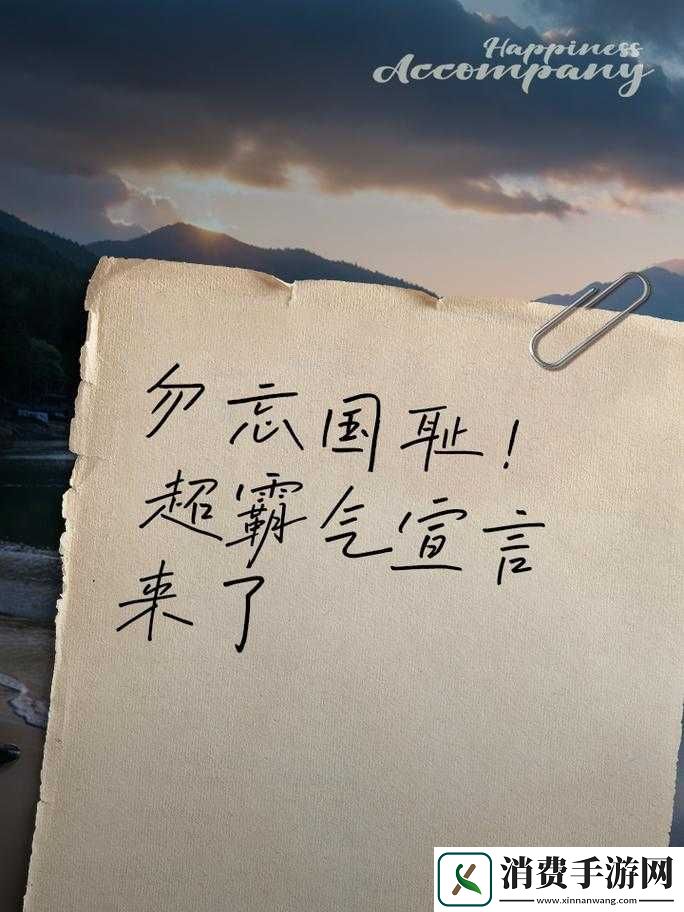 Happiness
Accompany
勿忘国耻！
超霸气宣言
来了
消费手游网
www.xinnanwang.com